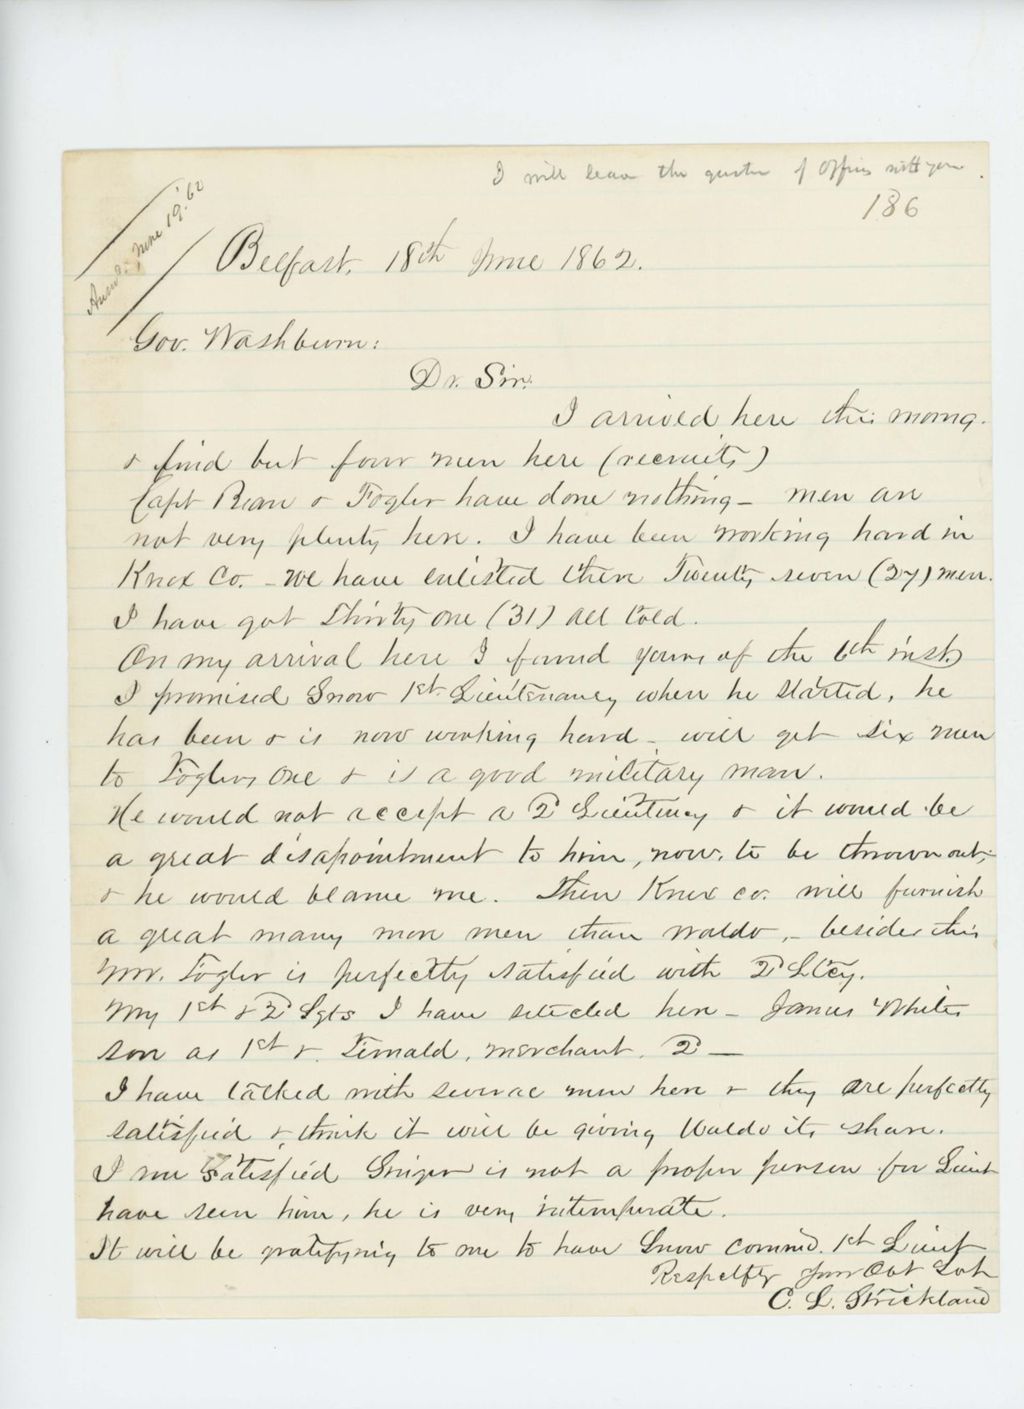 I will leave the question of Offices with you.
186
Answd. June 19. 62
Belfast, 18th June 1862.
Gov. Washburn:
Dr. Sir.
I arrived here this morng.
& find but four men here (recruits)
Capt Bean & Fogler have done nothing - men are
not very plenty here. I have been working hard in
Knox Co. - we have enlisted there Twenty seven (27) men.
I have got Thirty one (31) all told.
On my arrival here I found yours of the 6th inst.
I promised Snow 1st Lieutenancy when he started, he
has been & is now working hard - will get six men
to Foglers one & is a good military man.
He would not accept a 2d Lieutency & it would be
a great disapointment to him, now, to be thrown out,
& he would blame me. Then Knox co. will furnish
a great many more men than Waldo, - besides this
Mr. Fogler is perfectly satisfied with 2d Ltcy.
My 1st & 2d Sgts I have selected here - James White
son as 1st & Fernald, merchant, 2d -
I have talked with several men here & they are perfectly
satisfied & think it will be giving Waldo its share.
I am satisfied is not a proper person for Lieut
have seen him, he is very intemperate.
It will be gratifying to me to have Snow commd. 1st Lieut
Respctfly Your Obt Svt
C. L. Strickland